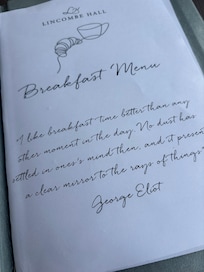 LH
LINCOMBE HALL
Breakfast Menu
"I like breakfast-time better than any
other moment in the day. No dust has
settled in one's mind then, and it presents
a clear mirror to the rays of things"
George Eliot